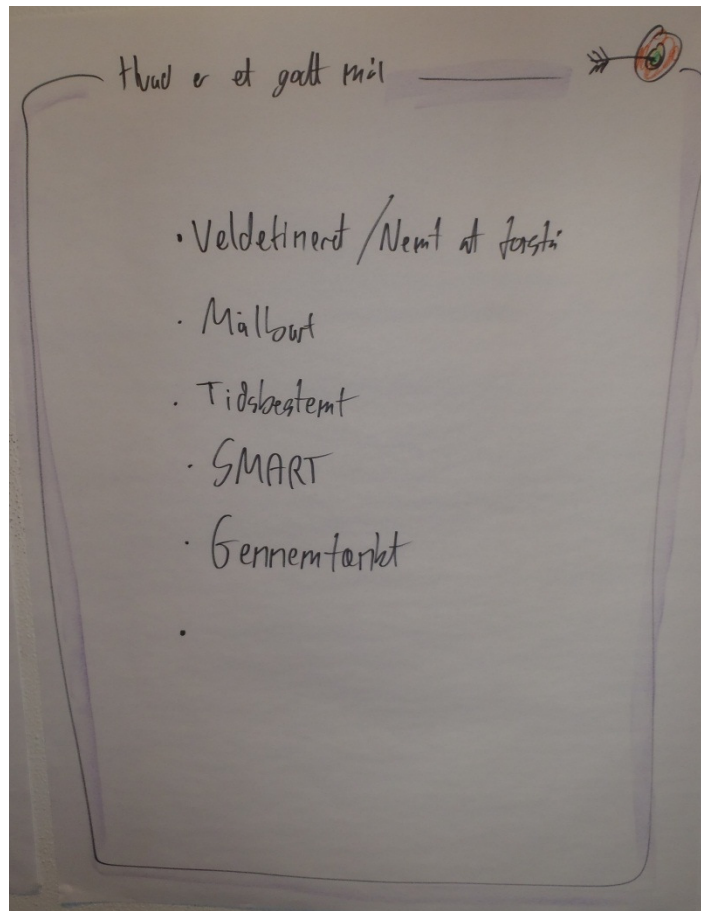 Hvad er et godt mål
• Veldefineret / Nemt at forstå
• Målbart
• Tidsbestemt
• SMART
• Gennemtænkt
•